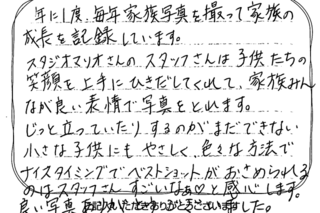 年に1度、毎年家族写真を撮って家族の
成長を記録しています。
スタジオマリオさんのスタッフさんは子供たちの
笑顔を上手にひきだしてくれて、家族みん
なが良い表情で写真をとれます。
じっと立っていたりするのがまだできない
小さな子供にもやさしく、色々な方法で
ナイスタイミングでベストショットがおさめられる
のはスタッフさんすごいなぁ♡と感心します。
良い写真
ありがとうございました。